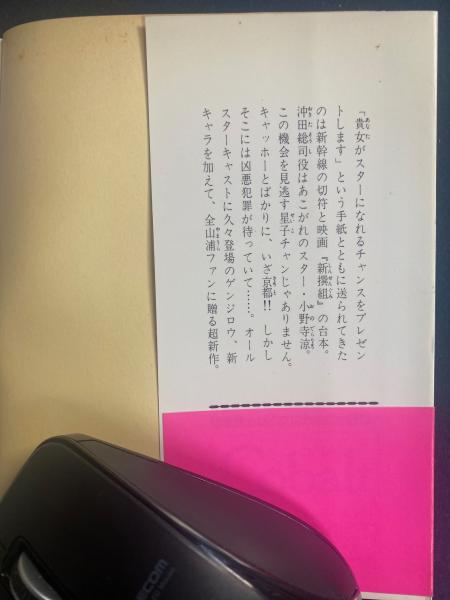 「貴女がスターになれるチャンスをプレゼン
トします」という手紙とともに送られてきた
のは新幹線の切符と映画『新撰組』の台本。
沖田総司役はあこがれのスター・小野寺涼。
この機会を見逃す星子チャンじゃありません。
キャッホーとばかりに、いざ京都!! しかし
そこには凶悪犯罪が待っていて……。オール
スターキャストに久々登場のゲンジロウ、新
キャラを加えて、全山浦ファンに贈る超新作。